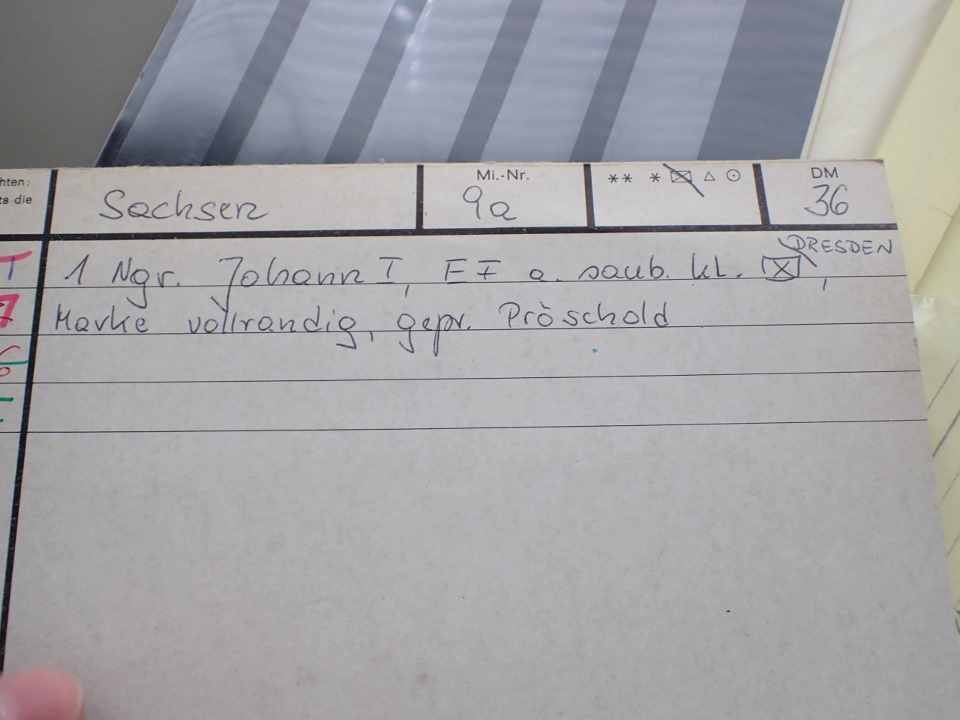 hten:
ts die
Sachsen
Mi.-Nr.
9a
** * ✉ △ ⊙
DM
36
DRESDEN
1 Ngr. Johann I, EF a. saub. kl. ✉,
Marke vollrandig, gepr. Pröschold